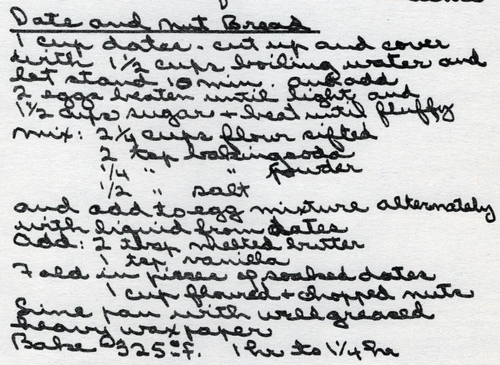 Date and Nut Bread
1 cup dates - cut up and cover
with 1 1/2 cups boiling water and
let stand 10 min. and add
2 eggs beaten until light and
1 1/2 cups sugar + beat until fluffy
Mix: 2 1/4 cups flour sifted
2 tsp baking soda
1/4 " " powder
1/2 " salt
and add to egg mixture alternately
with liquid from dates
Add: 2 tbsp melted butter
1 tsp vanilla
Fold in pieces of soaked dates
1 cup floured + chopped nuts
Line pan with well greased
heavy wax paper
Bake 325° F. 1 hr to 1 1/4 hr